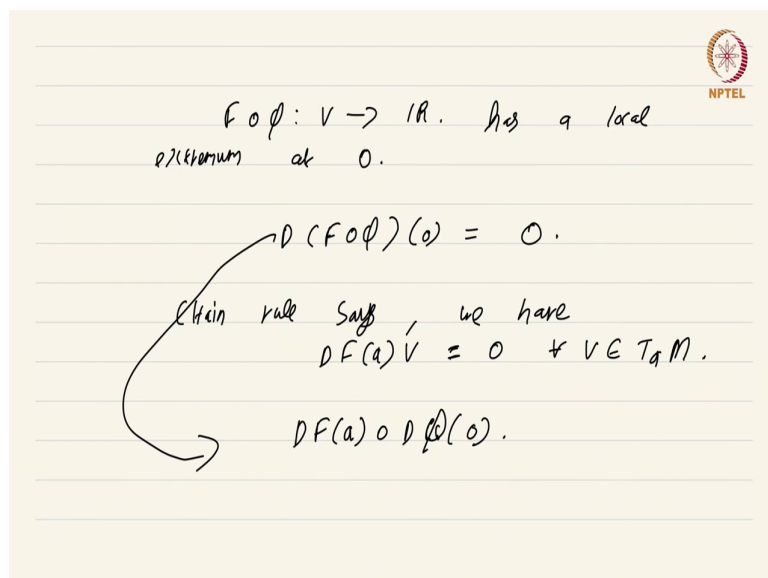 NPTEL
F o φ : V -> IR. has a local
extremum at 0.
D (F o φ) (0) = 0.
Chain rule says, we have
DF(a) V = 0 ∀ V ∈ TaM.
DF(a) o Dφ(0).